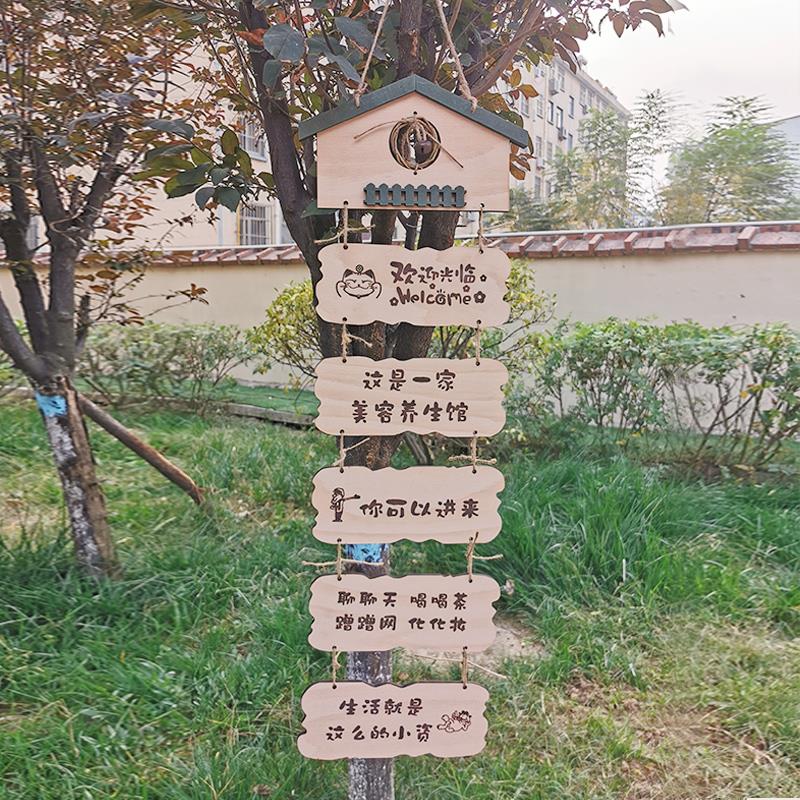 欢迎光临
Welcome
这是一家
美容养生馆
你可以进来
聊聊天 喝喝茶
蹭蹭网 化化妆
生活就是
这么的小资